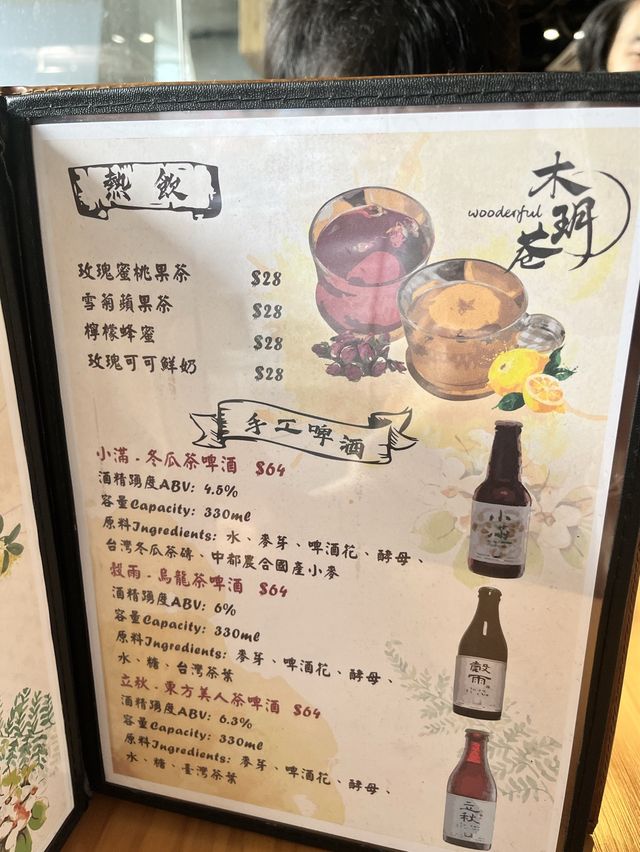 熱飲
木玥苍
wooderful
玫瑰蜜桃果茶 $28
雪翁蘋果茶 $28
檸檬蜂蜜 $28
玫瑰可可鮮奶 $28
手工啤酒
小滿.冬瓜茶啤酒 $64
酒精踴度ABV: 4.5%
容量Capacity: 330ml
原料Ingredients: 水、麥芽、啤酒花、酵母、
台灣冬瓜茶磚、中都農合國產小麥
穀雨.烏龍茶啤酒 $64
酒精踴度ABV: 6%
容量Capacity: 330ml
原料Ingredients: 麥芽、啤酒花、酵母、
水、糖、台灣茶葉
立秋.東方美人茶啤酒 $64
酒精踴度ABV: 6.3%
容量Capacity: 330ml
原料Ingredients: 麥芽、啤酒花、酵母、
水、糖、臺灣茶葉
小滿
穀雨
立秋